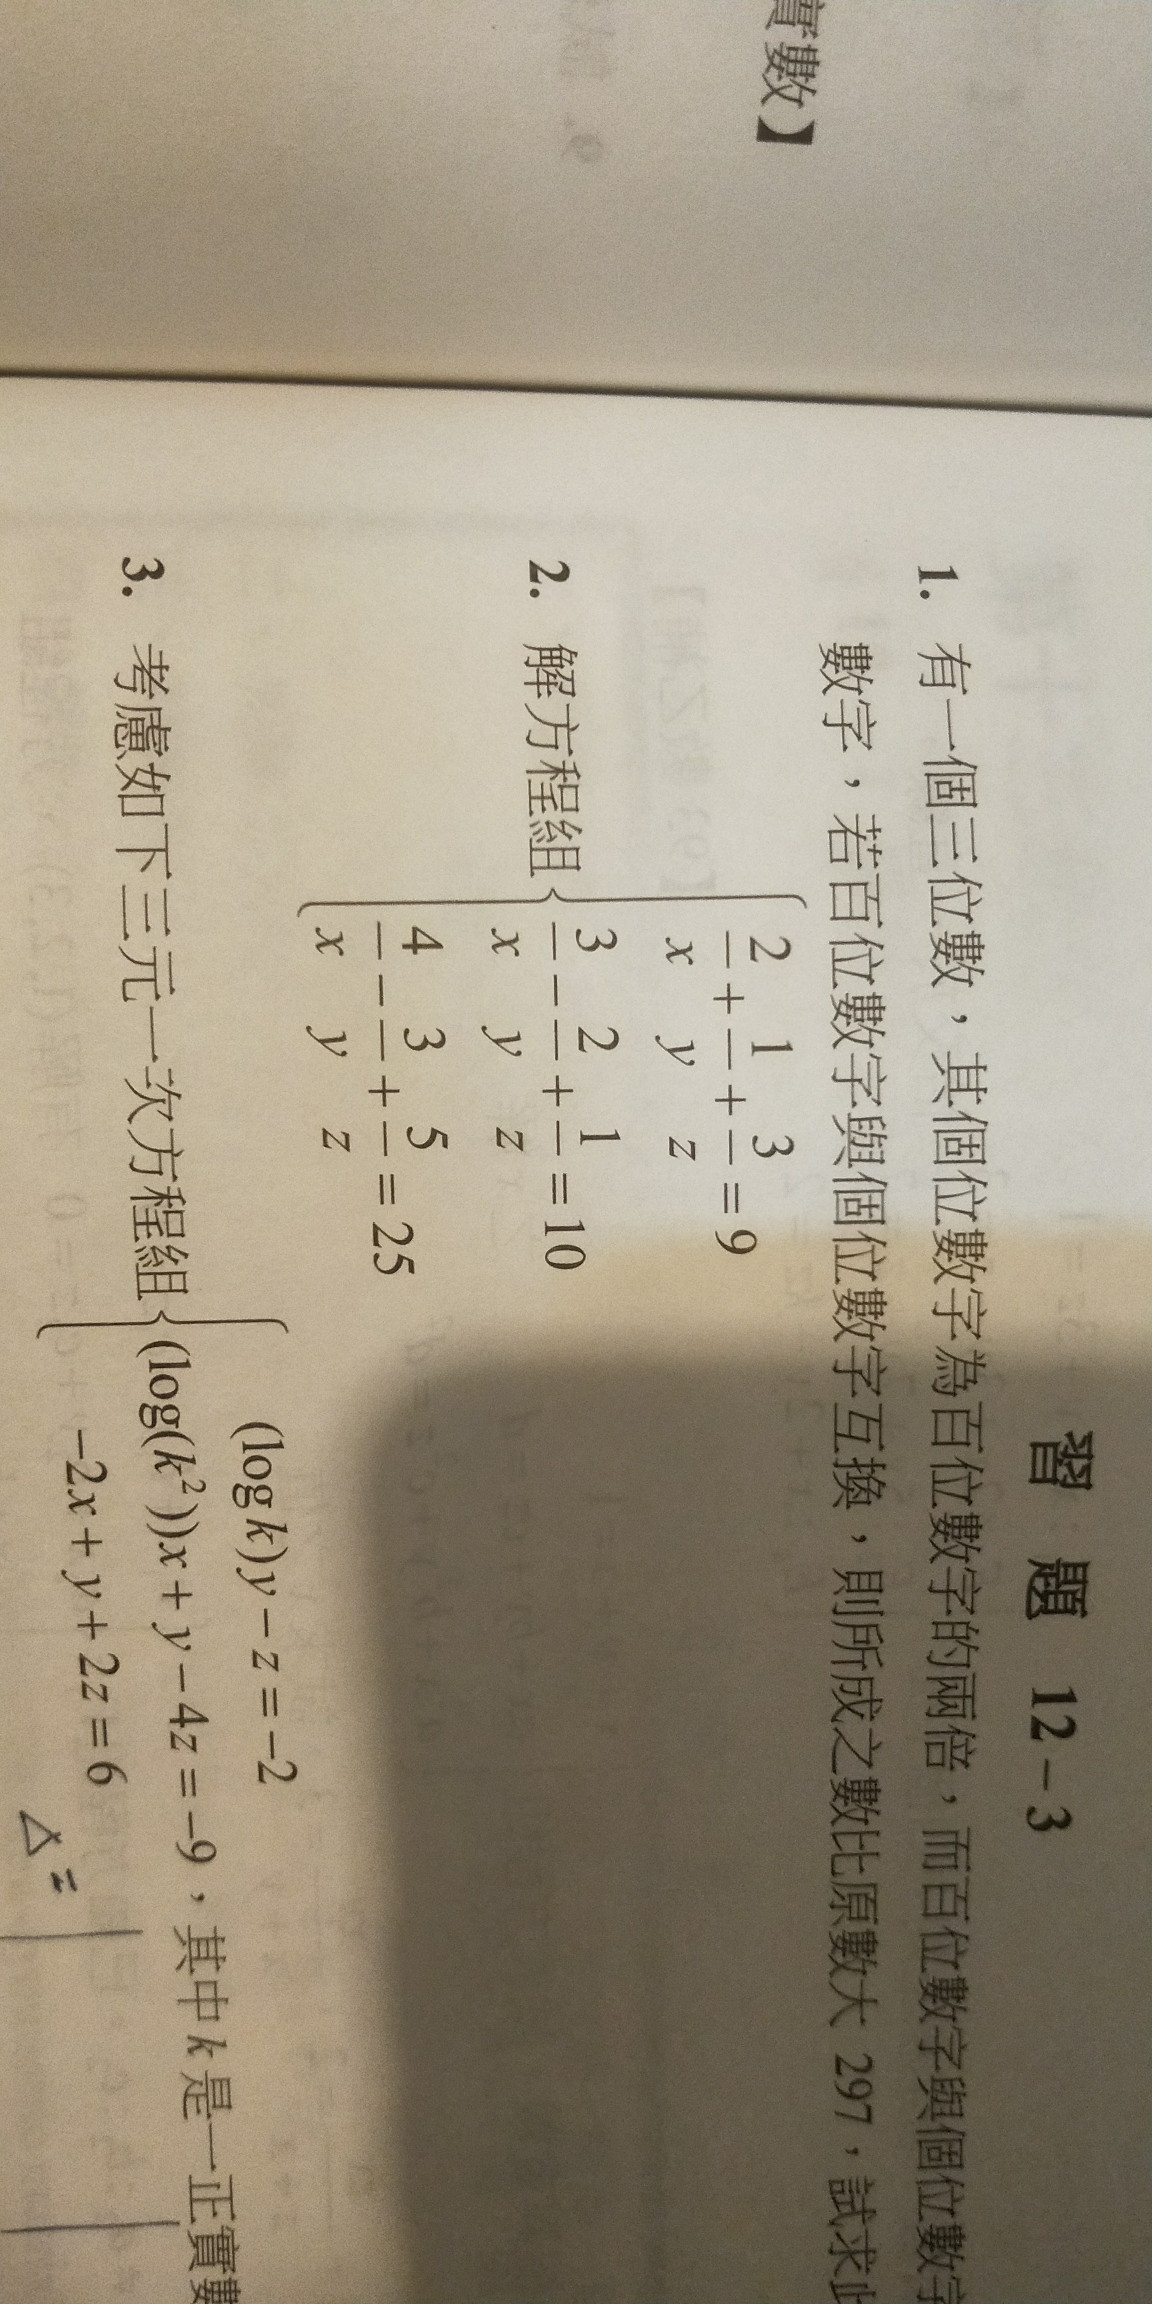 數】
習 題 12－3
1. 有一個三位數，其個位數字為百位數字的兩倍，而百位數字與個位數字
數字，若百位數字與個位數字互換，則所成之數比原數大 297，試求
2. 解方程組 { 2/x + 1/y + 3/z = 9
3/x − 2/y + 1/z = 10
4/x − 3/y + 5/z = 25
3. 考慮如下三元一次方程組 { (log k)y − z = −2
(log(k²))x + y − 4z = −9，其中 k 是一正實
−2x + y + 2z = 6
Δ =